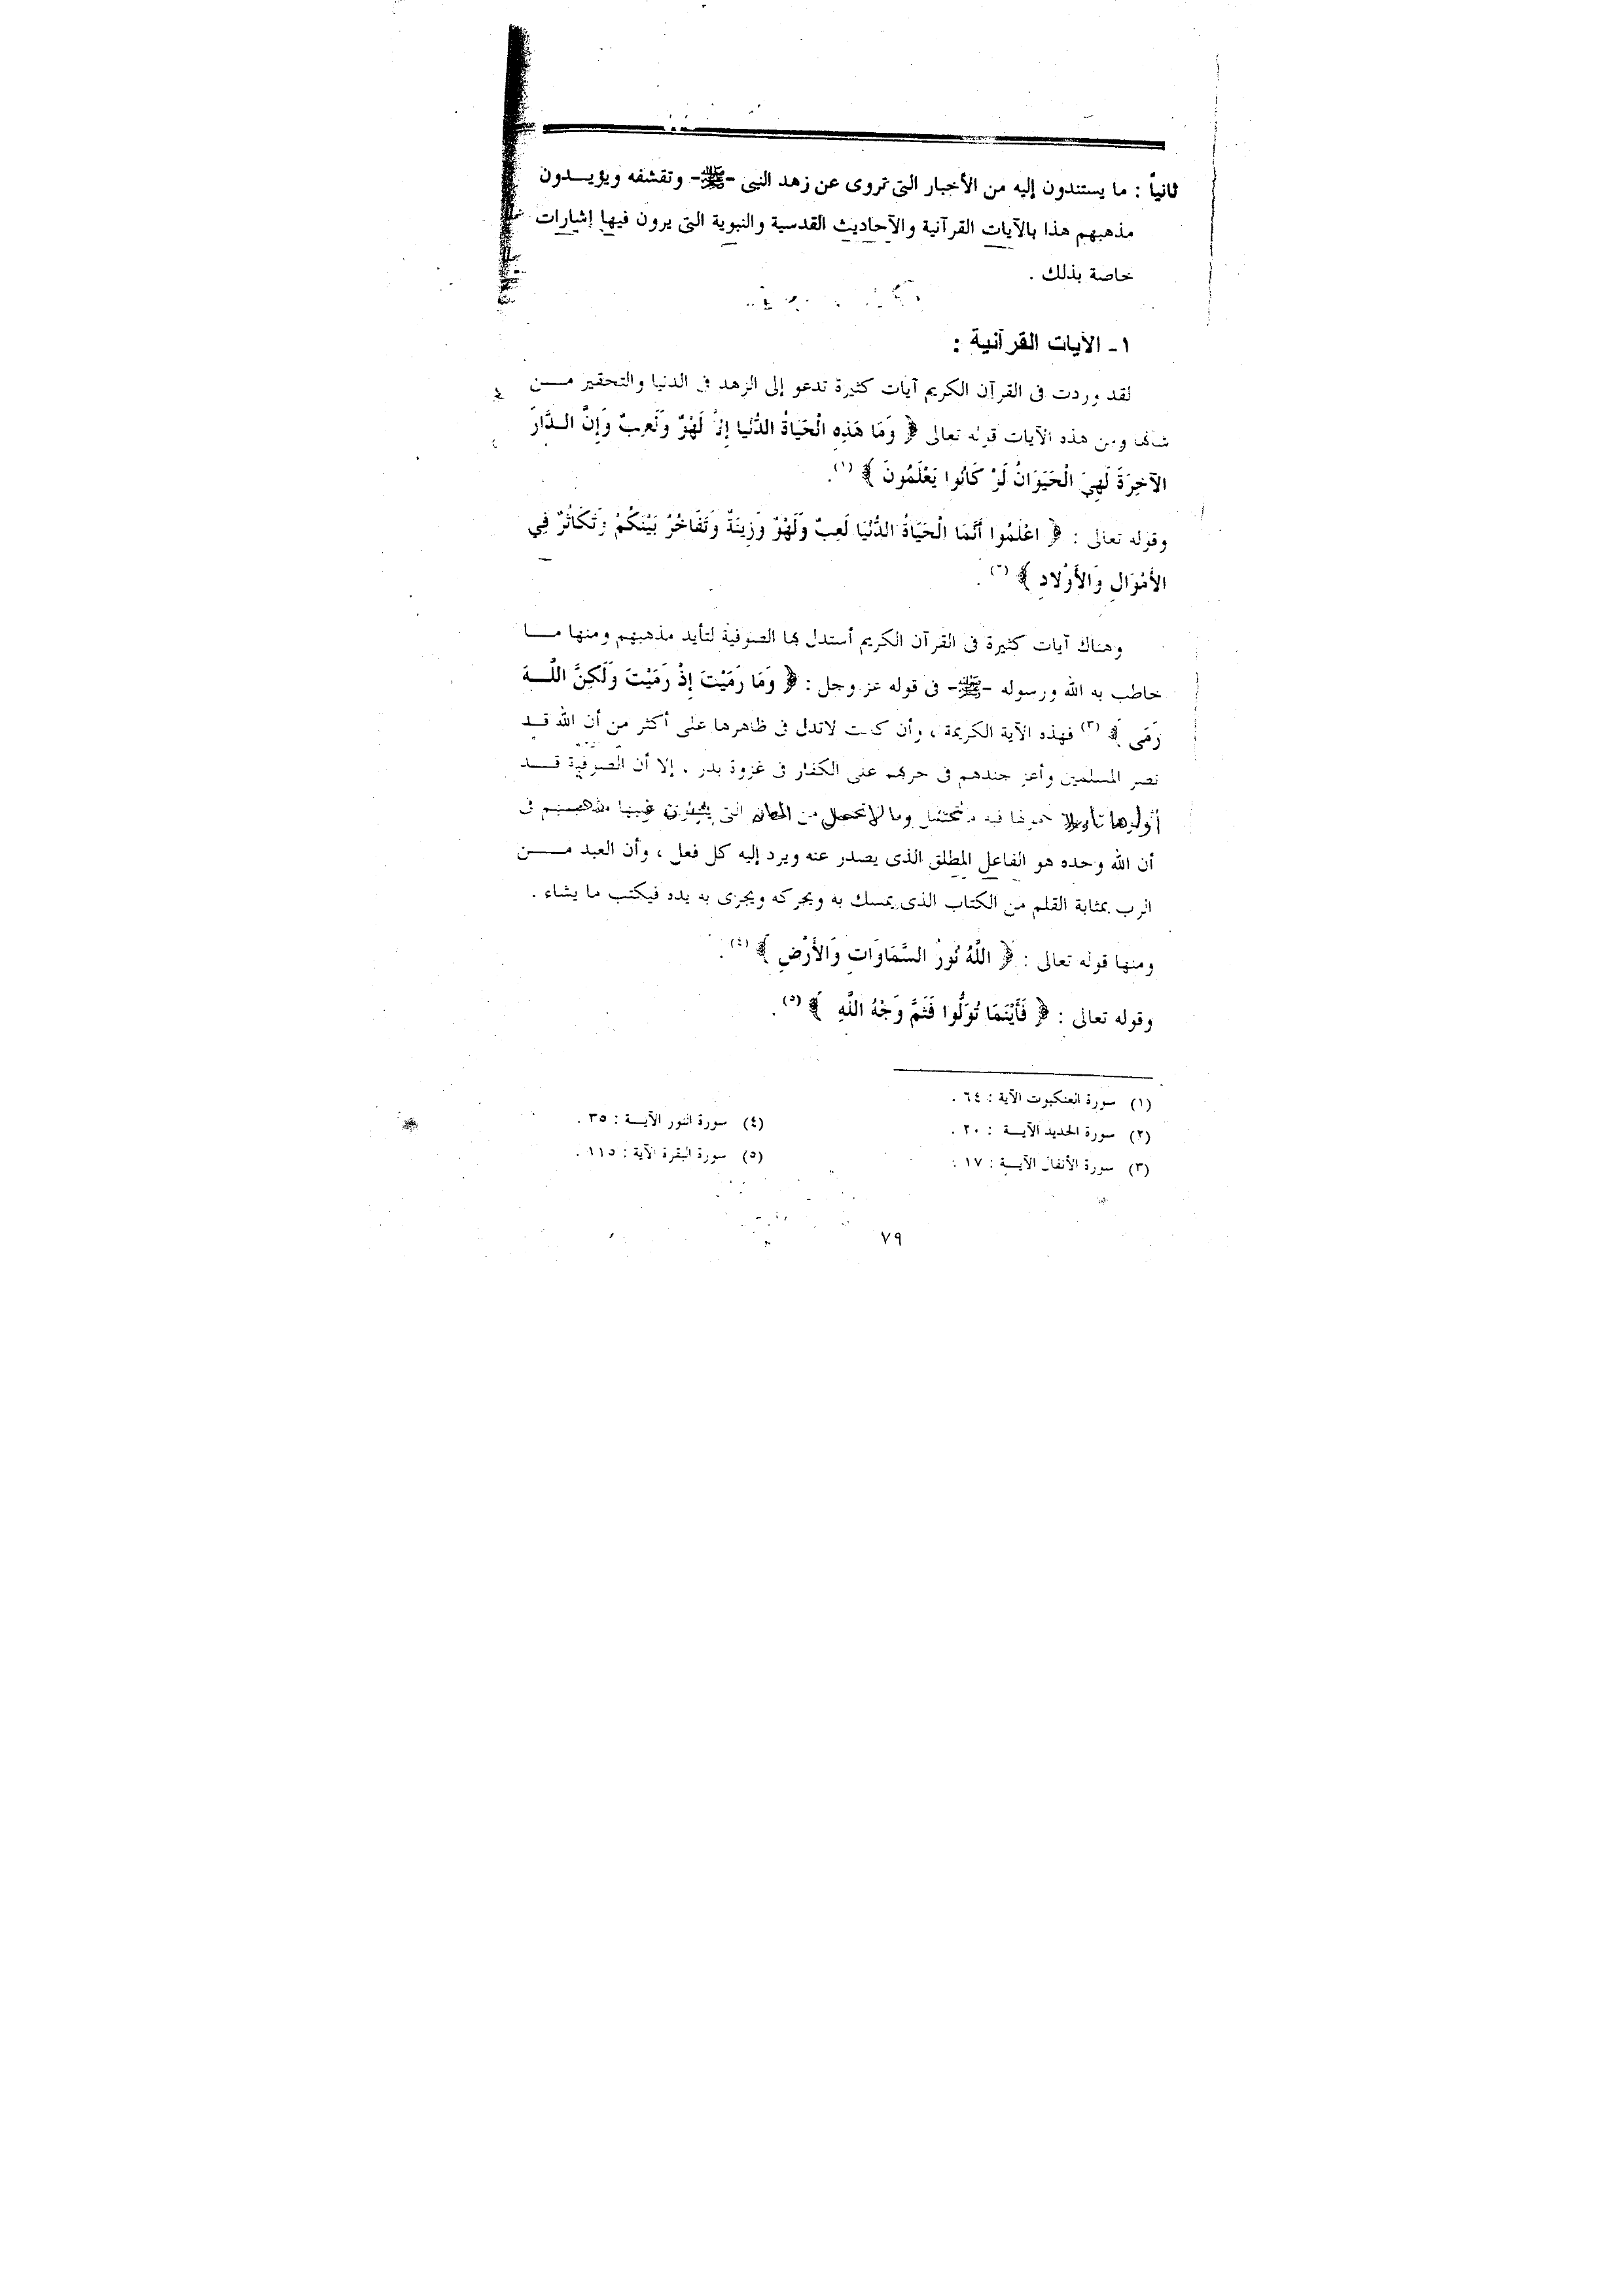 ثانياً : ما يستندون إليه من الأخبار التى تروى عن زهد النبى -ﷺ- وتقشفه ويؤيــدون
مذهبهم هذا بالآيات القرآنية والآحاديث القدسية والنبوية التى يرون فيها إشارات
خاصة بذلك .
١ ـ الآيات القرآنية :
لقد وردت فى القرآن الكريم آيات كثيرة تدعو إلى الزهد فى الدنيا والتحقير مــن
شأنها ومن هذه الآيات قوله تعالى ﴿ وَمَا هَذِهِ الْحَيَاةُ الدُّنْيَا إِلاَّ لَهْوٌ وَلَعِبٌ وَإِنَّ الــدَّارَ
الآخِرَةَ لَهِيَ الْحَيَوَانُ لَوْ كَانُوا يَعْلَمُونَ ﴾ (١).
وقوله تعالى : ﴿ اعْلَمُوا أَنَّمَا الْحَيَاةُ الدُّنْيَا لَعِبٌ وَلَهْوٌ وَزِينَةٌ وَتَفَاخُرٌ بَيْنَكُمْ وَتَكَاثُرٌ فِي
الأَمْوَالِ وَالأَوْلادِ ﴾ (٢) .
وهناك آيات كثيرة فى القرآن الكريم أستدل بها الصوفية لتأيد مذهبهم ومنها مــا
خاطب به الله ورسوله -ﷺ- فى قوله عز وجل : ﴿ وَمَا رَمَيْتَ إِذْ رَمَيْتَ وَلَكِنَّ اللَّــهَ
رَمَى ﴾ (٣) فهذه الآية الكريمة ، وأن كانت لاتدل فى ظاهرها على أكثر من أن الله قــد
نصر المسلمين وأعز جندهم فى حربهم على الكفار فى غزوة بدر . إلا أن الصوفية قــد
أولوها تأويلا فيه تحتمل وما لا تحتمل من المعانى التى مذهبــهم فى
أن الله وحده هو الفاعل المطلق الذى يصدر عنه ويرد إليه كل فعل ، وأن العبد مــن
الرب بمثابة القلم من الكتاب الذى يمسك به ويحركه ويجرى به يده فيكتب ما يشاء .
ومنها قوله تعالى : ﴿ اللَّهُ نُورُ السَّمَاوَاتِ وَالأَرْضِ ﴾ (٤).
وقوله تعالى : ﴿ فَأَيْنَمَا تُوَلُّوا فَثَمَّ وَجْهُ اللَّهِ ﴾ (٥).
(١) سورة العنكبوت الآية : ٦٤ .
(٢) سورة الحديد الآيــة : ٢٠ .
(٣) سورة الأنفال الآيــة : ١٧ .
(٤) سورة النور الآيــة : ٣٥ .
(٥) سورة البقرة الآية : ١١٥ .
٧٩